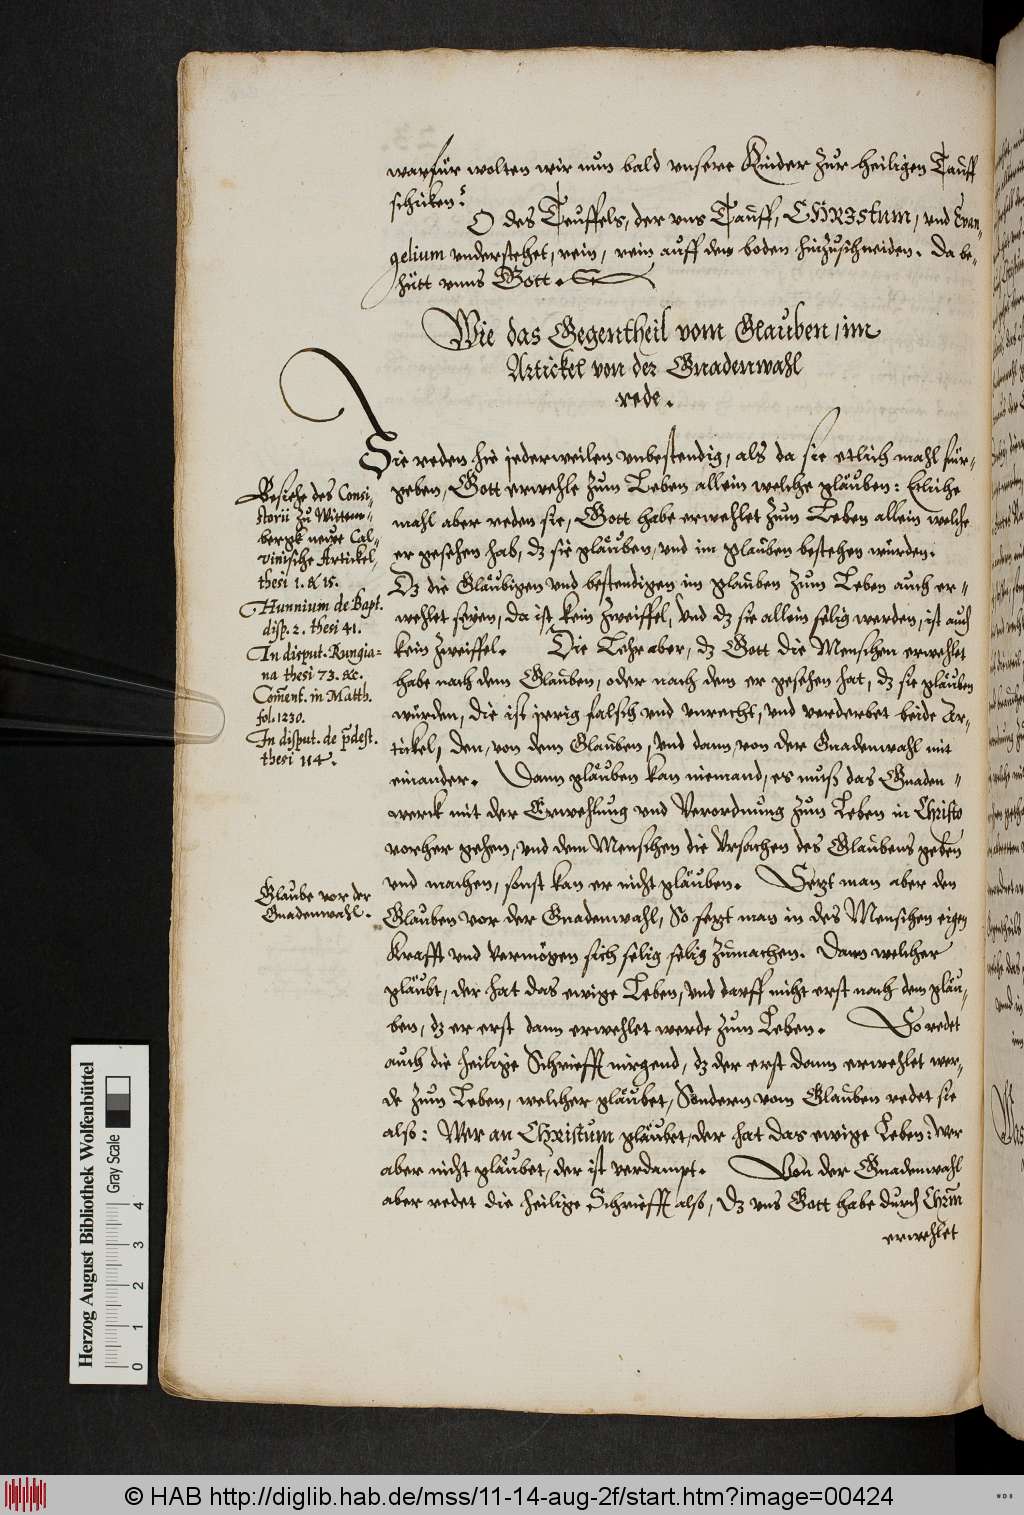 warfür wolten wir nun bald vnsere Kinder zur heiligen Tauff
schicken?
O des Teuffels, der vns Tauff, CHRIstum, vnd Evan-
gelium understehet, rein, rein auff den boden hinzuschneiden. Da be-
hütt vnns Gott.
Wie das Gegentheil vom Glauben, im
Artickel von der Gnadenwahl
rede.
Sie reden hie jederweilen vnbestendig, als da sie etlich mahl für-
geben, Gott erwehle zum Leben allein welche gläuben: Etliche
mahl aber reden sie, Gott habe erwehlet zum Leben allein welche
er gesehen hab, dz sie gläuben, vnd im glauben bestehen würden.
Dz die Gläubigen vnd bestendigen im glauben zum Leben auch er-
wehlet seyen, da ist kein zweiffel, Vnd dz sie allein selig werden, ist auch
kein zweiffel. Die Lehr aber, dz Gott die Menschen erwehlet
habe nach dem Glauben, oder nach dem er gesehen hat, dz sie gläuben
würden, die ist jrrig falsch vnd vnrecht, vnd verderbet beide Ar-
tickel, den, von dem Glauben, Vnd dann, von der Gnadenwahl mit
einander. Dann gläuben kan niemand, es muß das Gnaden-
werck mit der Erwehlung vnd Verordnung zum Leben in Christo
vorher gehen, vnd dem Menschen die Vrsachen des Glaubens geben
vnd machen, sonst kan er nicht gläuben. Setzt man aber den
Glauben vor der Gnadenwahl, So setzt man in des Menschen eigen
Krafft vnd Vermögen sich selig selig zumachen. Dann welcher
gläubt, der hat das ewige Leben, Vnd darff nicht erst nach dem gläu-
ben, dz er erst dann erwehlet werde zum Leben. So redet
auch die heilige Schriefft nirgend, dz der erst dann erwehlet wer-
de zum Leben, welcher gläubet, Sondern vom Glauben redet sie
also: Wer an Christum gläubet, der hat das ewige Leben: Wer
aber nicht gläubet, der ist verdampt. Von der Gnadenwahl
aber redet die heilige Schriefft also, Dz vns Gott habe durch Chrm̄
erwehlet
Besiehe des Consi-
storii zu Wittem-
bergk neuwe Cal-
vinische Artickel,
thesi 1. & 15.
Hunnium de Bapt.
disp. 2. thesi 41.
In disput. Rungia-
na thesi 73. &c.
Com̄ent. in Matth.
fol. 1230.
In disput. de p̄dest.
thesi 114.
Glaube vor der
Gnadenwahl.
Herzog August Bibliothek Wolfenbüttel
Gray Scale
0 1 2 3 4
© HAB http://diglib.hab.de/mss/11-14-aug-2f/start.htm?image=00424